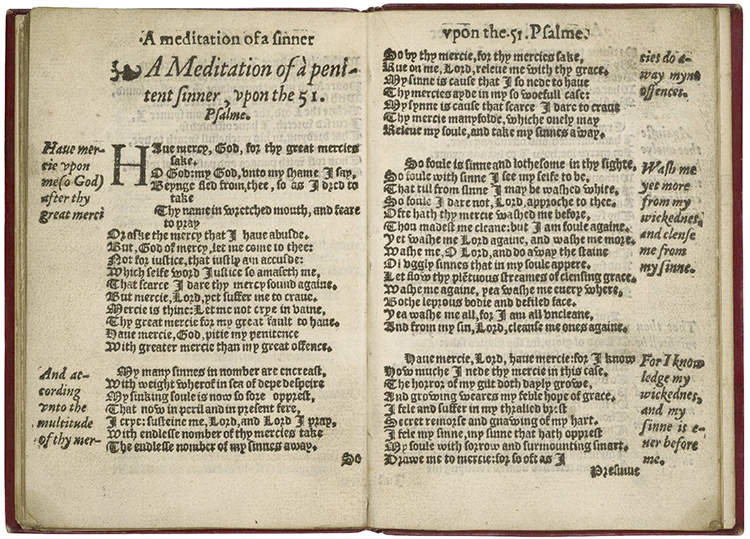 A meditation of a sinner
A Meditation of à peni-
tent sinner, vpon the 51.
Psalme.
Haue mer-
cie vpon
me (o God)
after thy
great merci
HAue mercy, God, for thy great mercies
sake.
O God: my God, vnto my shame I say,
Beynge fled from thee, so as I dred to
take
Thy name in wretched mouth, and feare
to pray
Or aske the mercy that I haue abusde.
But, God of mercy, let me come to thee:
Not for iustice, that iustly am accusde:
Which selfe word Iustice so amaseth me,
That scarce I dare thy mercy sound againe.
But mercie, Lord, yet suffer me to craue.
Mercie is thine: Let me not crye in vaine,
Thy great mercie for my great fault to haue.
Haue mercie, God, pitie my penitence
With greater mercie than my great offence.
And ac-
cording
vnto the
multitude
of thy mer-
My many sinnes in number are encreast,
With weight wherof in sea of depe despeire
My sinking soule is now so sore opprest,
That now in peril and in present fere,
I crye: susteine me, Lord, and Lord I pray,
With endlesse nomber of thy mercies take
The endlesse nomber of my sinnes away.
So
vpon the 51. Psalme.
So by thy mercie, for thy mercies sake,
Rue on me, Lord, releue me with thy grace.
My sinne is cause that I so nede to haue
Thy mercies ayde in my so woefull case:
My synne is cause that scarce I dare to craue
Thy mercie manyfolde, whiche onely may
Releue my soule, and take my sinnes away.
cies do a-
way myne
offences.
So foule is sinne and lothesome in thy sighte,
So foule with sinne I see my selfe to be,
That till from sinne I may be washed white,
So foule I dare not, Lord, approche to thee.
Ofte hath thy mercie washed me before,
Thou madest me cleane: but I am foule againe.
Yet washe me Lord againe, and washe me more.
Washe me, O Lord, and do away the staine
Of vggly sinnes that in my soule appere.
Let flow thy plẽtuous streames of clensing grace.
Washe me againe, yea washe me euery where,
Bothe leprous bodie and defiled face.
Yea washe me all, for I am all vncleane,
And from my sin, Lord, cleanse me ones againe.
Wash me
yet more
from my
wickednes,
and clense
me from
my sinne.
Haue mercie, Lord, haue mercie: for I know
How muche I nede thy mercie in this case.
The horror of my gilt doth dayly growe,
And growing weares my feble hope of grace.
I fele and suffer in my thralled brest
Secret remorse and gnawing of my hart.
I fele my sinne, my sinne that hath opprest
My soule with sorrow and surmounting smart.
Drawe me to mercie: for so oft as I
For I know
ledge my
wickednes,
and my
sinne is e-
uer before
me.
Presume